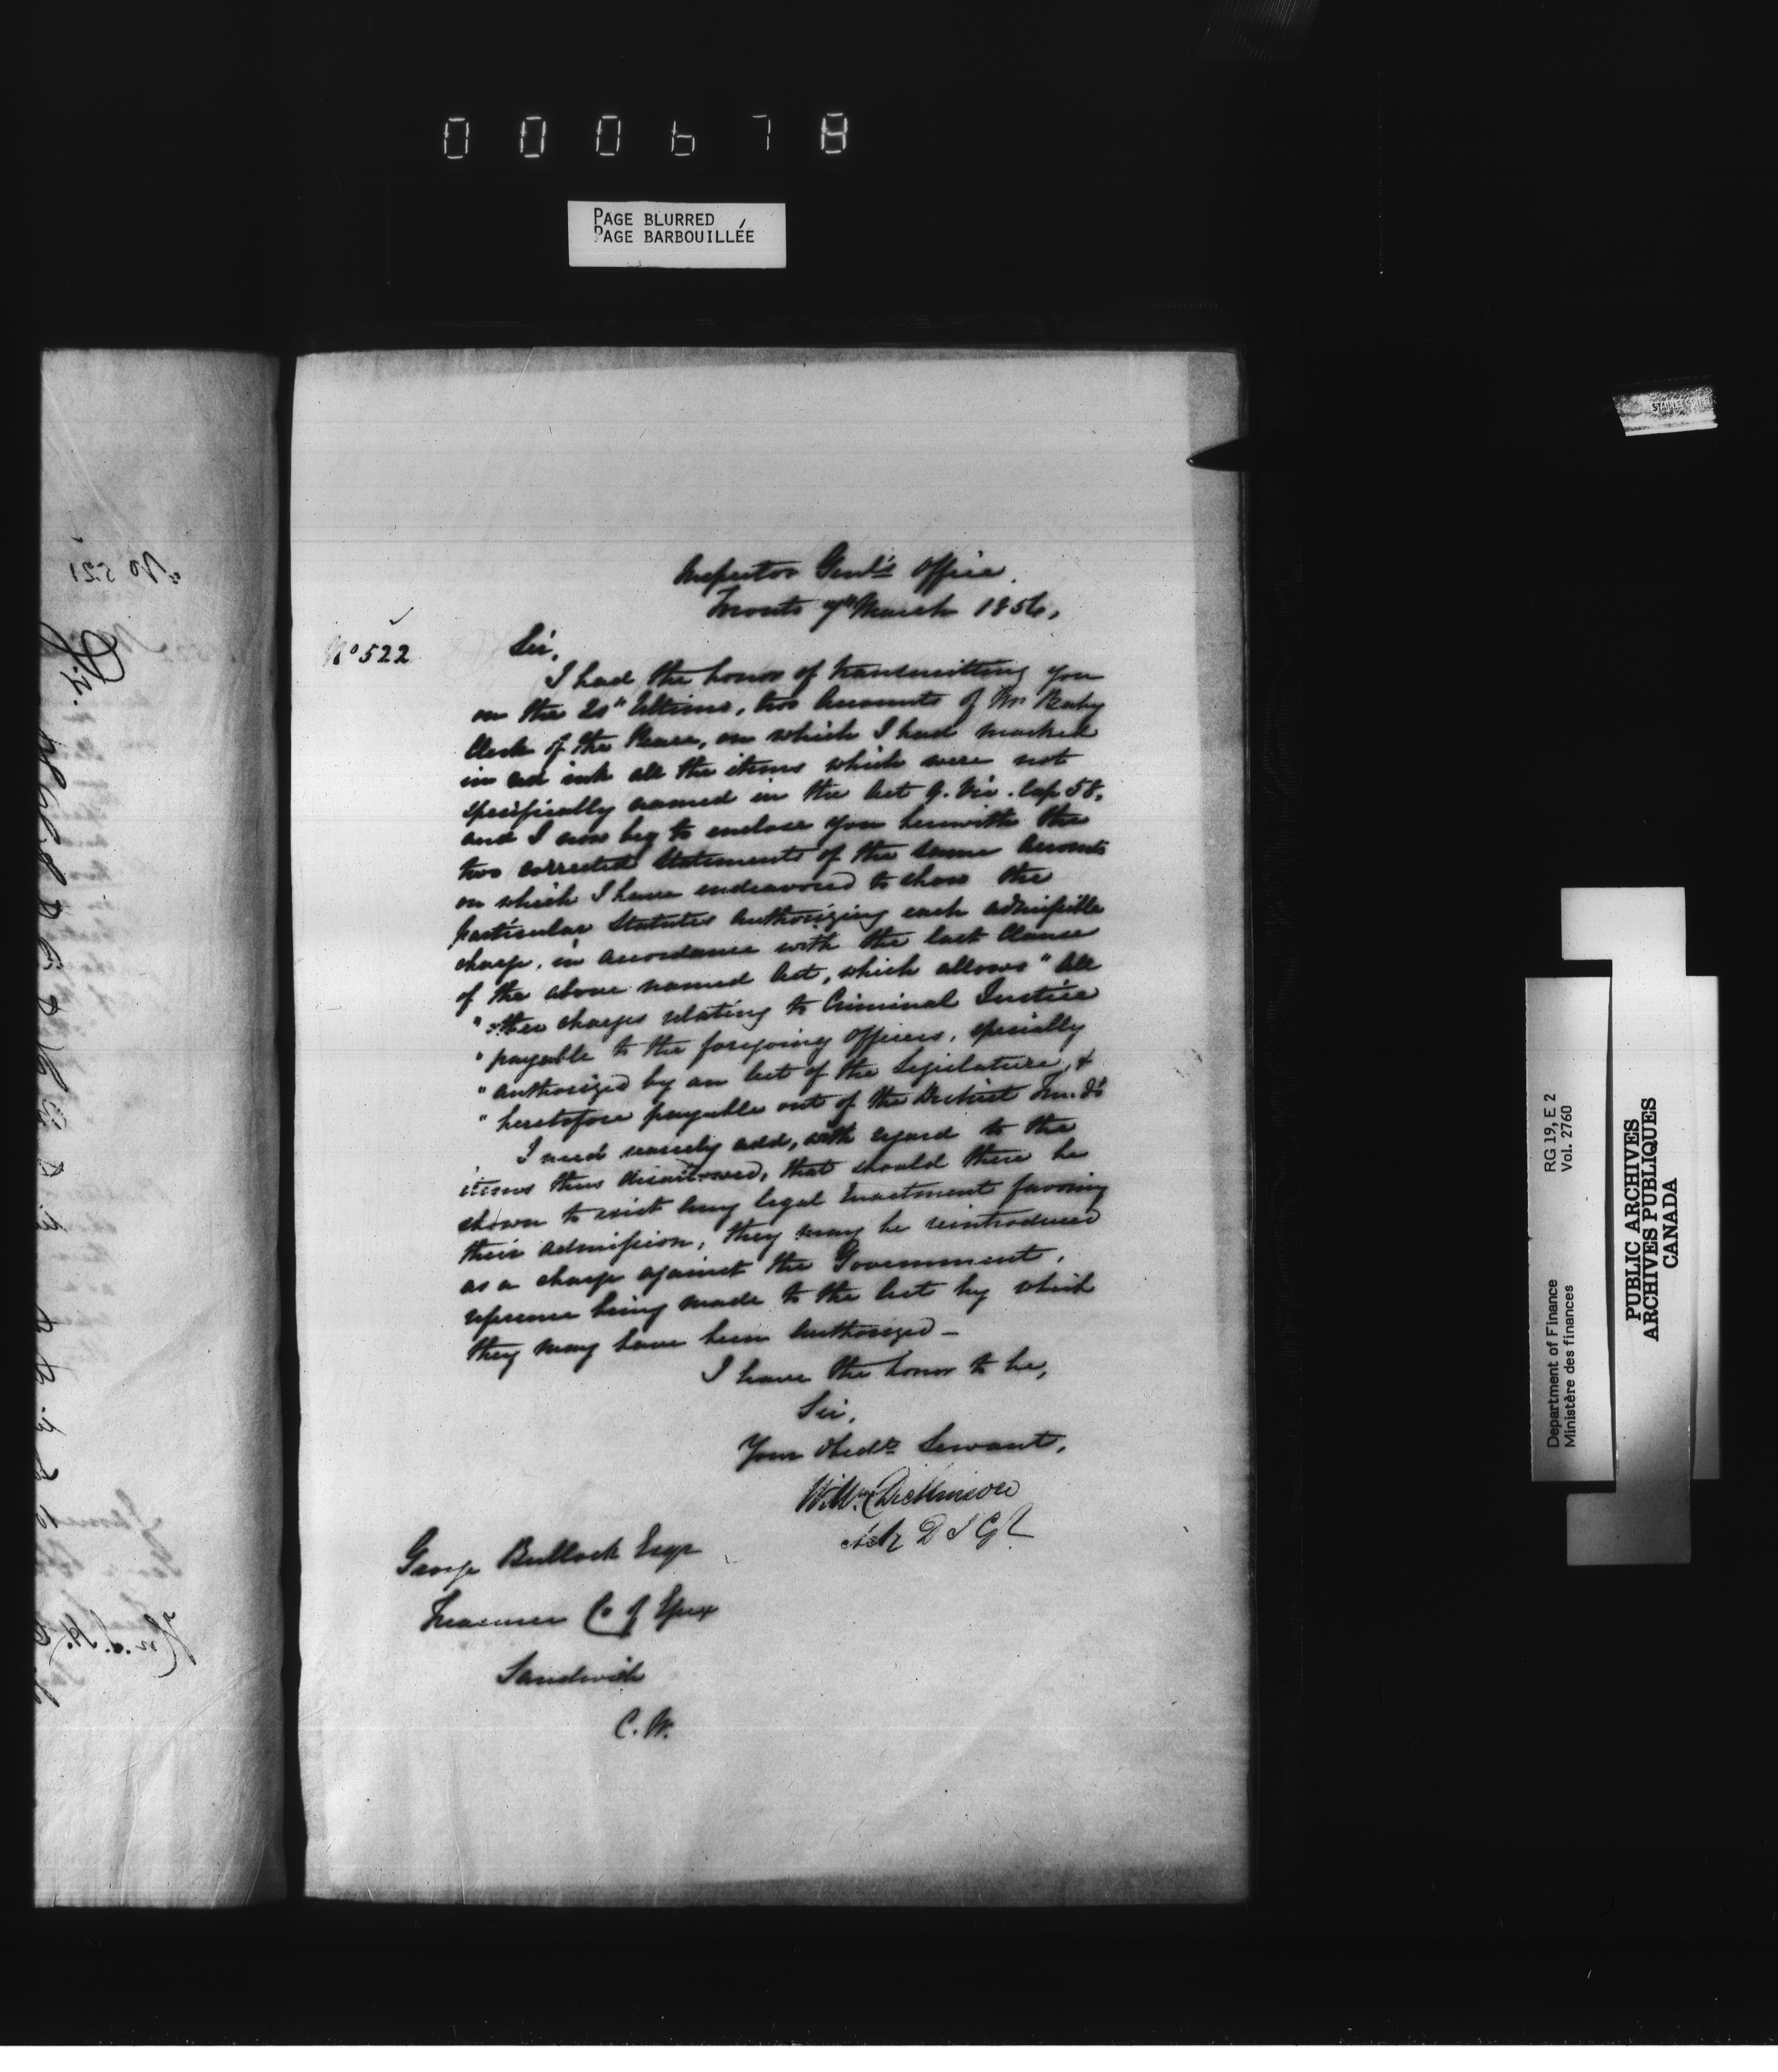 000678
PAGE BLURRED
PAGE BARBOUILLÉE
Inspector Genl's Office
Toronto 7th March 1856,
No 522
Sir,
I had the honor of transmitting you
on the 20" Ultimo, two Accounts of Mr Baby
Clerk of the Peace, on which I had marked
in red ink all the items which were not
specifically named in the Act 9. Vic. Cap 58,
and I now beg to enclose you herewith the
two corrected Statements of the same Accounts
on which I have endeavored to show the
particular Statutes authorizing each admissible
charge, in accordance with the last Clause
of the above named Act, which allows "All
" other charges relating to Criminal Justice
" payable to the foregoing Officers, specially
" authorized by an Act of the Legislature, &
" heretofore payable out of the District Funds
I need scarcely add, with regard to the
items thus disallowed, that should there be
shown to exist any legal Enactment favoring
their admission, they may be reintroduced
as a charge against the Government,
reference being made to the Act by which
they may have been authorized —
I have the honor to be,
Sir,
Your Obedt Servant,
Willm Dickinson
Actg D I Gl
George Bullock Esqr
Treasurer Co of Essex
Sandwich
C. W.
No 521
RG 19, E 2
Vol. 2760
Department of Finance
Ministère des finances
PUBLIC ARCHIVES
ARCHIVES PUBLIQUES
CANADA